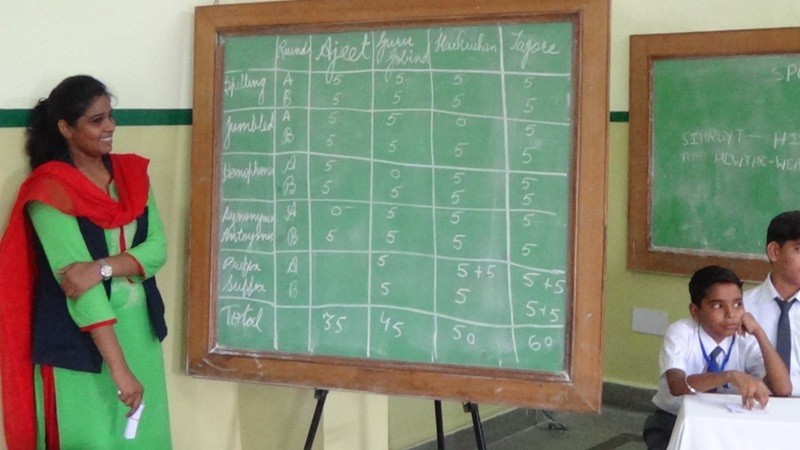 Round Ajeet Guru Gobind Harkrishan Tagore
Spelling A 5 5 5 5
B 5 5 5 5
Jumbled A 5 5 0 5
B 5 5 5 5
Homophones A 5 0 5 5
B 5 5 5 5
Synonyms A 0 5 5 5
Antoyms B 5 5 5 5
Prefix A 5 5+5 5+5
Suffix B 5 5 5+5
Total 35 45 50 60
SP